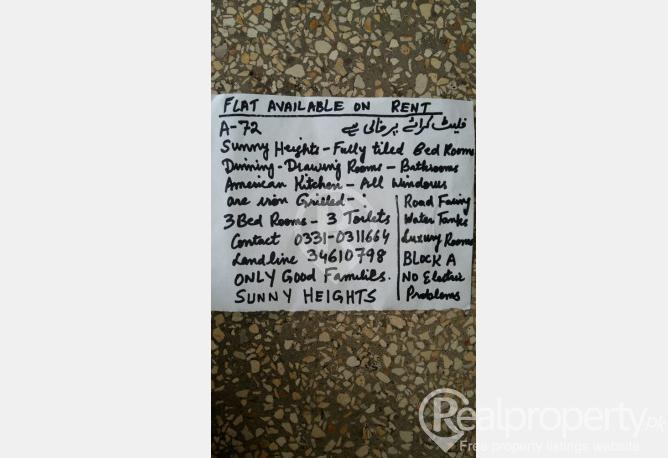 FLAT AVAILABLE ON RENT
A-72 فلیٹ کرائے پر خالی ہے
Sunny Heights - Fully tiled Bed Rooms
Dinning - Drawing Rooms - Bathrooms
American Kitchen - All Windows
are iron Grilled - :
3 Bed Rooms - 3 Toilets
Contact 0331-0311664
Landline 34610798
ONLY Good Families.
SUNNY HEIGHTS
Road Facing
Water Tanks
Luxury Rooms
BLOCK A
No Electric
Problems
Realproperty.pk
Free property listings website